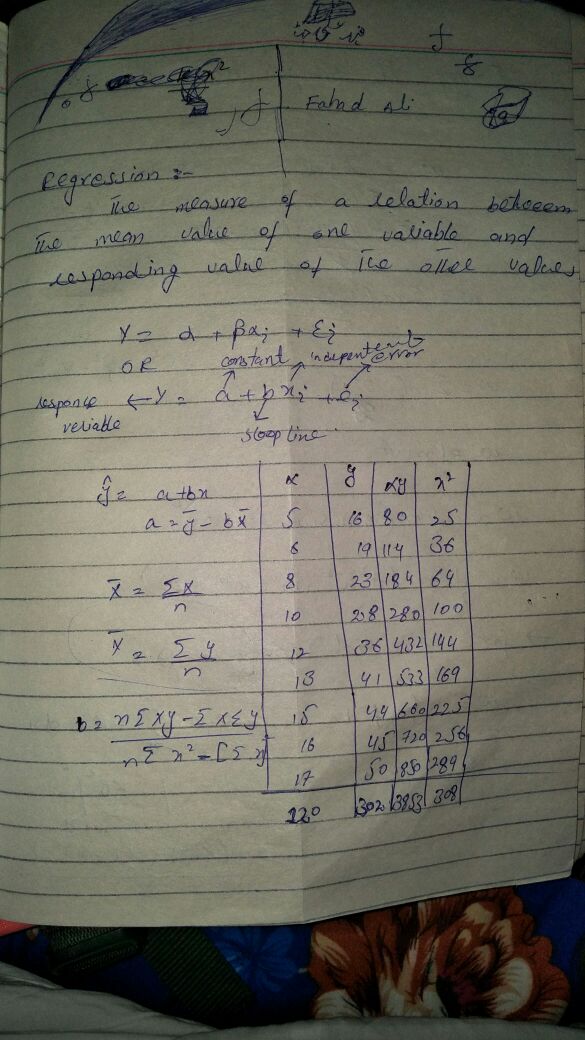 Fahad Ali
Regression :-
The measure of a relation between
The mean value of one variable and
responding value of The other values
Y = α + βxi + Ɛi
OR
constant independent error
response variable ← Y = a + bxi + ei
sloop line
ŷ = a+bx
a = ȳ - bx̄
x̄ = Σx / n
Y̅ = Σy / n
b = nΣxy - ΣxΣy / nΣx² - [Σx]
x y xy x²
5 16 80 25
6 19 114 36
8 23 184 64
10 28 280 100
12 36 432 144
13 41 533 169
15 44 660 225
16 45 720 256
17 50 850 289
120 302 3853 308